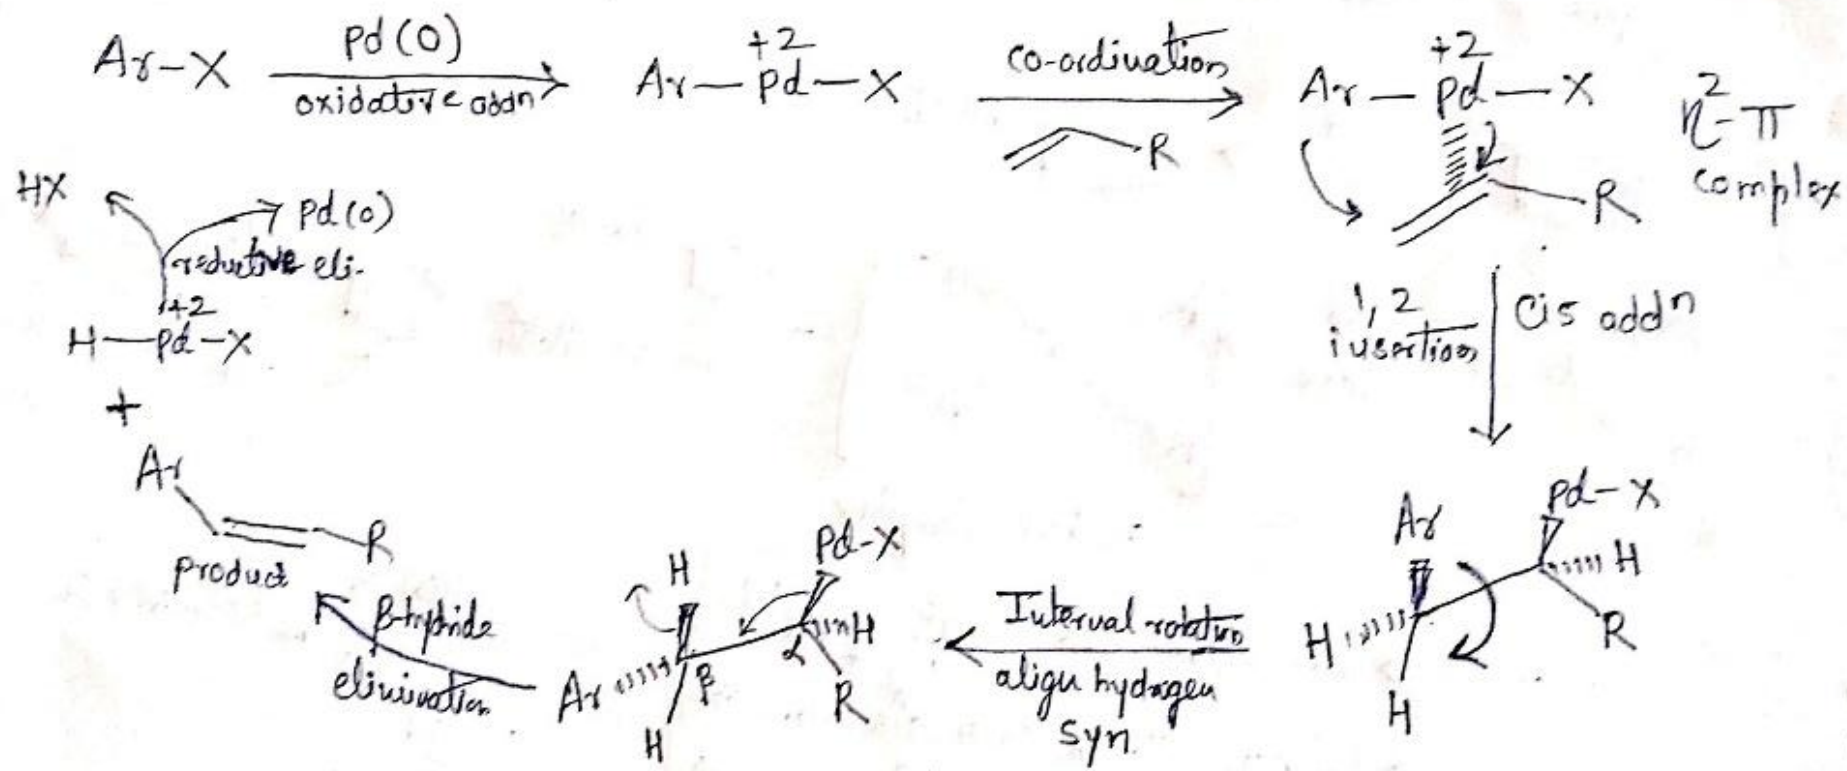 Ar-X
Pd(0)
oxidative addn
+2
Ar-Pd-X
co-ordination
R
+2
Ar-Pd-X
R
η²-π
complex
1,2
insertion
Cis addn
Ar
Pd-X
H
H
R
H
Internal rotation
align hydrogen
syn
H
Pd-X
H
α
Ar
β
R
H
β-hydride
elimination
Ar
R
product
+
+2
H-Pd-X
reductive eli.
Pd(0)
HX